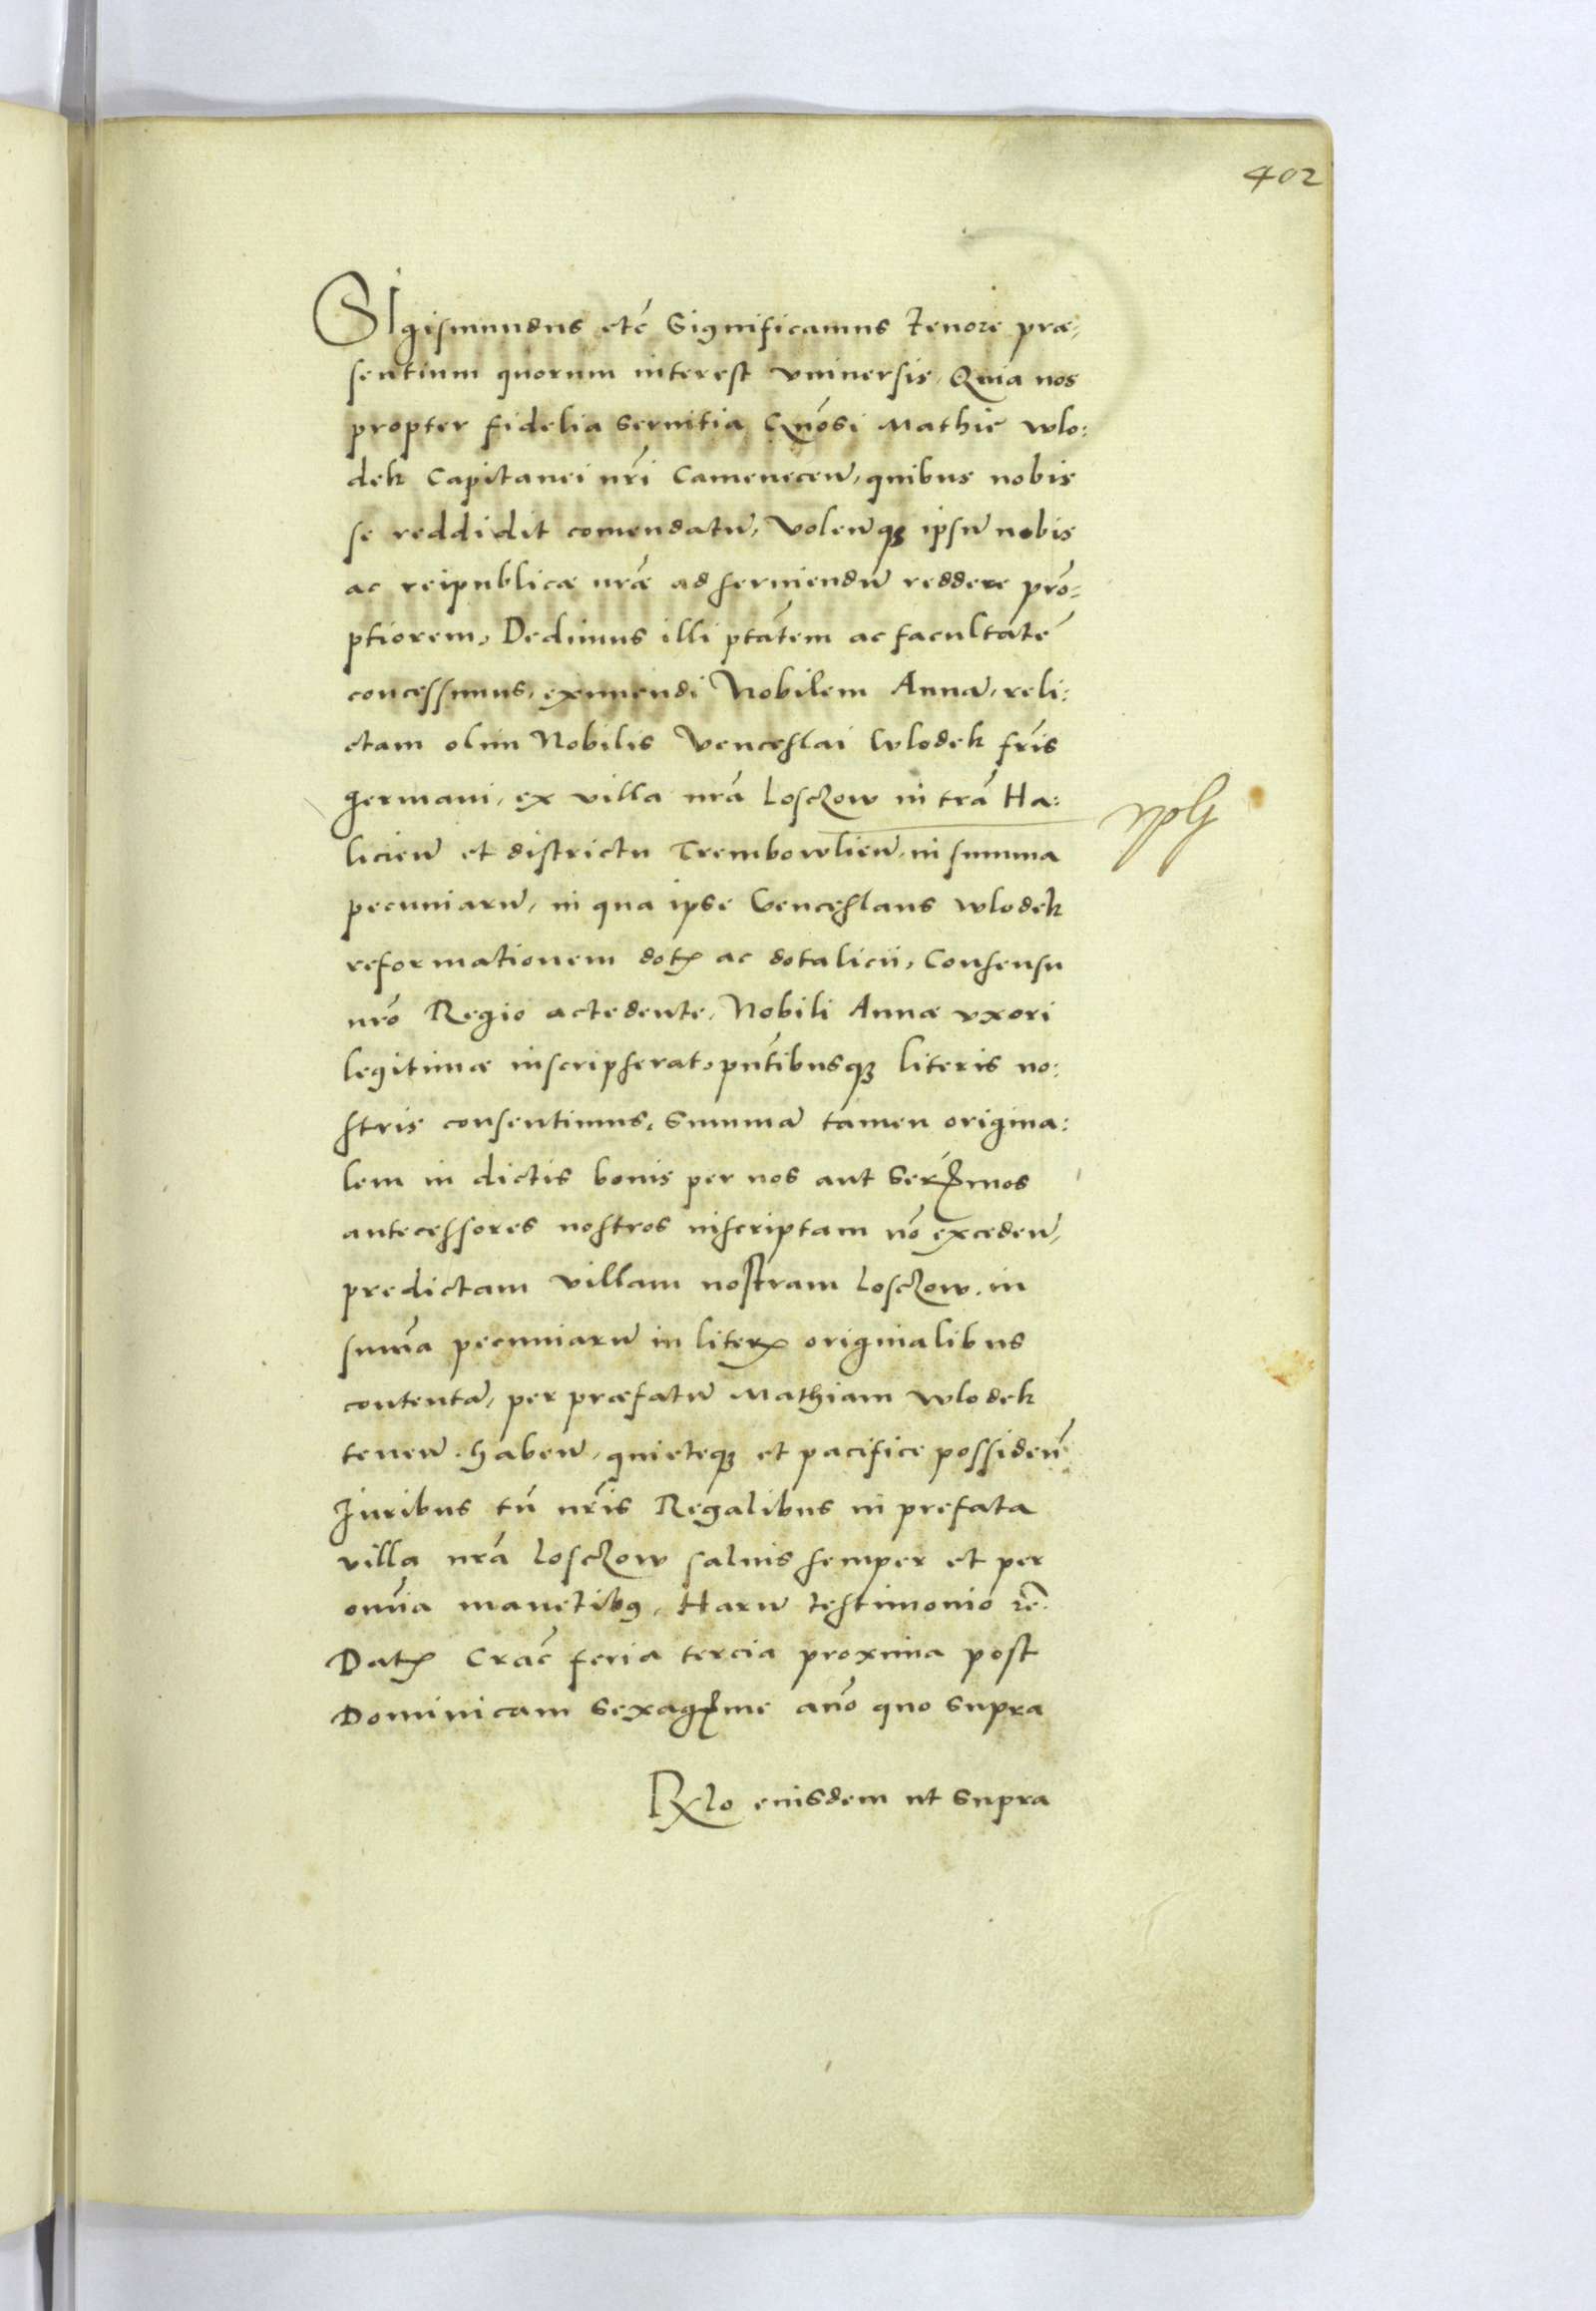 402
SIgismundus etc̃ Significamus tenore præ,
sentium quorum interest vniuersis. Quia nos
propter fidelia seruitia Gñosi Mathie wlo:
dek Capitanei nr̃i Cameneceñ, quibus nobis
se reddidit comendatũ, Voleñqꝫ ipsũ nobis
ac reipublicæ nræ̃ ad seruiendũ reddere prõ,
ptiorem, Dedimus illi ptãtem ac facultatẽ
concessimus, eximendi Nobilem Annã, reli:
ctam olim Nobilis Venceslai Wlodek fr̃is
germani, ex villa nrã Losczow in trã Ha:
licieñ et districtu Trembowlieñ, in summa
pecuniarũ, in qua ipse Venceslaus wlodek
reformationem dotꝭ ac dotalicii, Consensu
nrõ Regio accedente, Nobili Annæ vxori
legitimæ inscripserat, pñtibusqꝫ literis no:
stris consentimus, Summã tamen origina:
lem in dictis bonis per nos aut Serꝭmos
antecessores nostros inscriptam nõ excedeñ,
predictam villam nostram Losczow, in
sum̃a pecuniarũ in literꝭ originalibus
contentã, per præfatũ Mathiam wlodek
teneñ. habeñ, quieteqꝫ et pacifice possideñ
Iuribus tñ nr̃is Regalibus in prefata
villa nrã Losczow saluis semper et per
om̃ia manẽtibꝰ, Harũ testimonio rẽ.
Datꝭ Crac̃ feria tercia proxima post
Dominicam Sexagꝭme año quo supra
Rꝭlo eiusdem ut supra